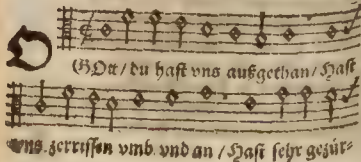 O GOtt / du hast vns außgethan / Hast
vns zerrissen vmb vnd an / Hast sehr gezür-